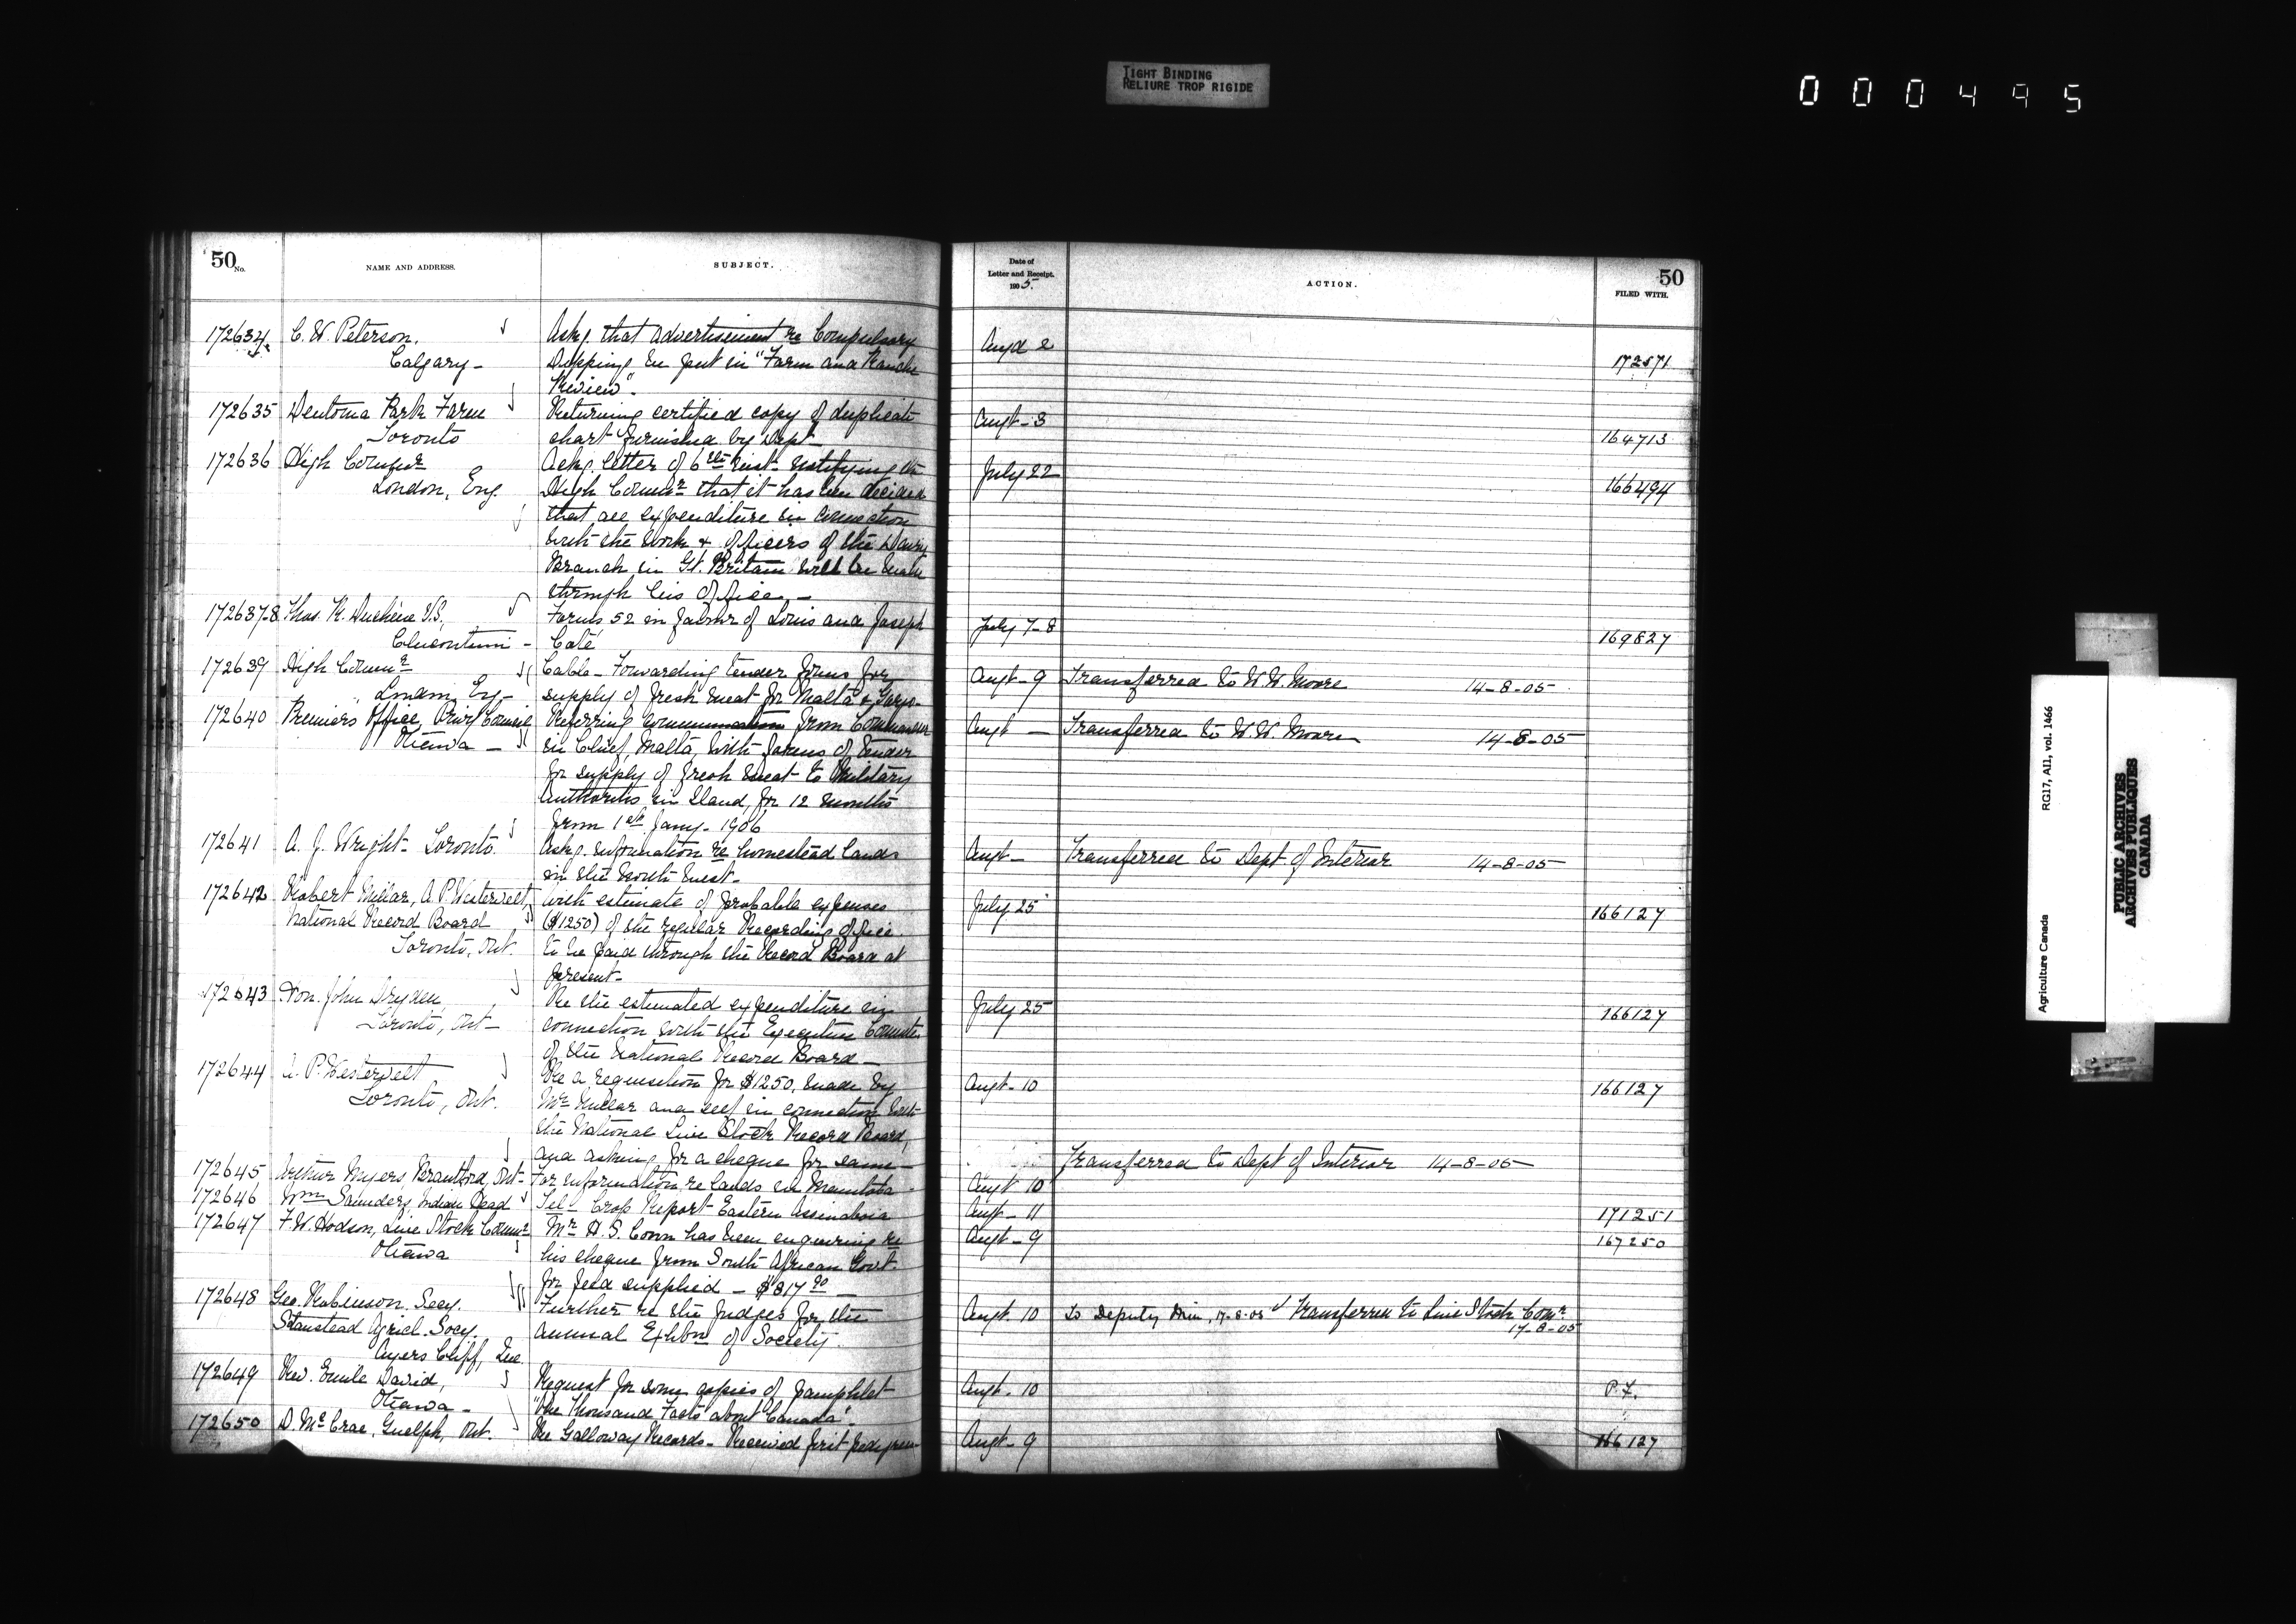 TIGHT BINDING
RELIURE TROP RIGIDE
000495
50 No.
NAME AND ADDRESS.
SUBJECT.
Date of
Letter and Receipt.
1905.
ACTION.
50
FILED WITH.
172634 C. W. Peterson, Askg. that advertisement re Compulsory Augt 2
Calgary - Dipping be put in "Farm and Ranche 172571
Review".
172635 Dentonia Park Farm Returning certified copy of duplicate Augt - 3
Toronto chart furnished by Dept 164713
172636 High Commr Ackg. letter of 6th inst. notifying the July 22
London, Eng. High Commr that it has been decided 166494
that all expenditure in connection
with the work & officers of the Dairy
Branch in Gt. Britain will be made
through his office. -
172637-8 Thos. K. Duchêne V.S. Forms 52 in favour of Louis and Joseph July 7-8
Chicoutimi - Coté 169827
172639 High Commr Cable - Forwarding tender forms for Augt - 9 Transferred to W. W. Moore 14-8-05
London, Eng - supply of fresh meat for Malta &
172640 Premiers Office, Privy Council Referring communication from Commander Augt — Transferred to W. W. Moore 14-8-05
Ottawa - in Chief, Malta, with forms of tender
for supply of fresh meat to Military
Authorities in Island, for 12 months
from 1st Jany. 1906
172641 A. J. Wright - Toronto Askg. information re homestead lands Augt — Transferred to Dept of Interior 14-8-05
in the North West -
172642 Robert Millar, A. P. Westervelt, with estimate of probable expenses July 25
National Record Board ($1250) of the regular Recording office 166127
Toronto, Ont. to be paid through the Record Board at
present -
172643 Hon. John Dryden, Re the estimated expenditure in July 25
Toronto, Ont - connection with the Executive Committee 166127
of the National Record Board -
172644 A. P. Westervelt Re a requisition for $1250. made by Augt - 10
Toronto, Ont. Mr Millar and self in connection with 166127
the National Live Stock Record Board,
and asking for a cheque for same - Transferred to Dept of Interior 14-8-05
172645 Arthur Myers, Brantford, Ont - For information re lands in Manitoba Augt 10
172646 Wm Saunders, Indian Head Tel - Crop Report Eastern Assiniboia Augt - 11 171251
172647 F. W. Hodson, Live Stock Commr Mr H. S. Conn has been enquiring re Augt - 9 167250
Ottawa his cheque from South African Govt.
for feed supplied - $817.90
172648 Geo. Robinson. Secy. Further re the Judges for the Augt. 10 To Deputy Min, 17-8-05 Transferred to Live Stock Comr
Stanstead Agricl. Socy. annual Exhbn of Society. 17-8-05
Ayers Cliff, Que.
172649 Rev. Emile David, Request for some copies of pamphlet Augt. 10 P.F.
Ottawa - "Five Thousand Facts about Canada".
172650 D. McCrae, Guelph, Ont. Re Galloway Records - Received first pedigree Augt - 9 166127
Agriculture Canada RG17, A11, vol. 1466
PUBLIC ARCHIVES
ARCHIVES PUBLIQUES
CANADA